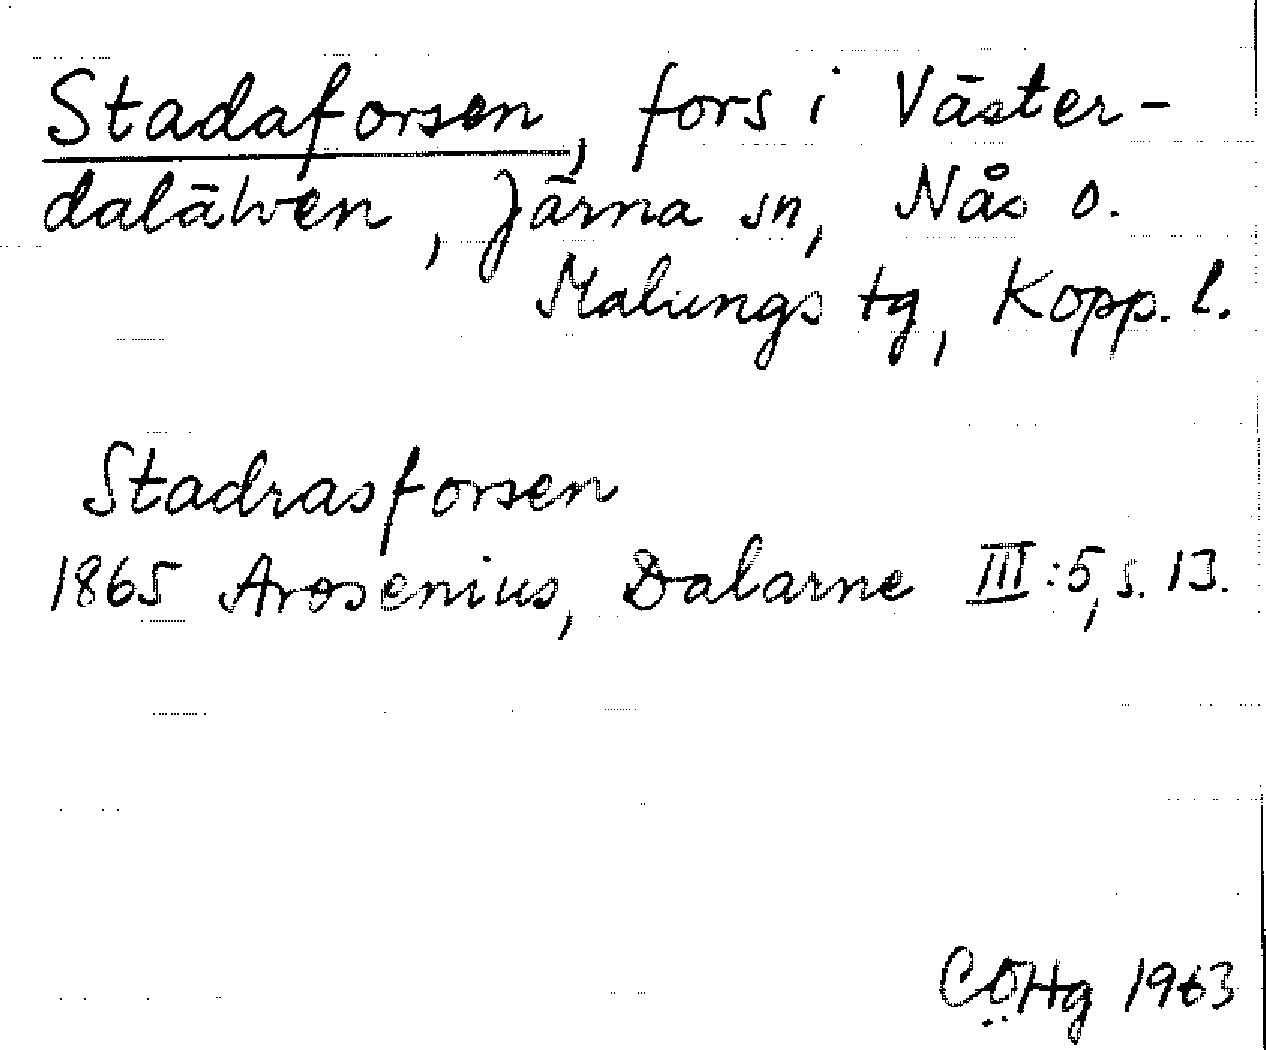 Stadaforsen, fors i Väster-
dalälven, Järna sn, Nås o.
Malungs tg, Kopp. l.
Stadrasforsen
1865 Arosenius, Dalarne III:5, s. 13.
CÖHg 1963